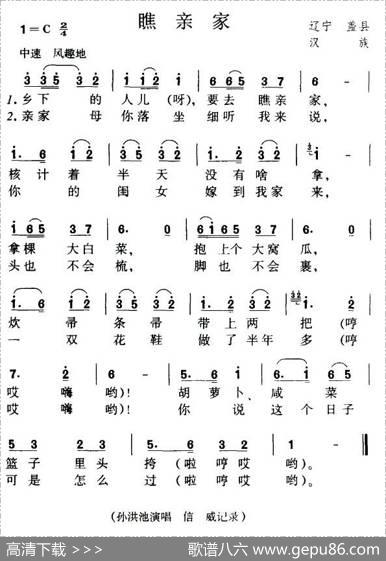 瞧亲家
1=C 2/4
辽宁 盖县
汉族
中速 风趣地
3 3 5 3 2 | 1 1 1 2 | 6 5 6 5 3 7 | 6 - |
1.乡下的人儿(呀),要去瞧亲家,
2.亲家母你落坐细听我来说,
1. 6 | 1 2 | 3 5 3 2 | 1 2 3 5 | 1 2 |
核计着半天没有啥拿,
你的闺女嫁到我家来,
1 6 5 3 7 | 6. 0 | 6 1 6 5 3 7 | 6. 0 |
拿棵大白菜,抱上个大窝瓜,
头也不会梳,脚也不会裹,
1. 6 | 1 2 | 3 5 3 2 | 1 2 3 5 | 1. 2 |
炊帚条帚带上两把(哼
一双花鞋做了半年多(哼
7. 2 | 6 - | 5. 3 | 2 - | 6. 1 | 6 5 |
哎嗨哟)!胡萝卜、咸菜
哎嗨哟)!你说这个日子
5 3 | 2 3 | 5. 6 | 3 2 | 1 - ‖
篮子里头挎(啦哼哎哟)。
可是怎么过(啦哼哎哟)。
(孙洪池演唱 信 威记录)
高清下载 >>>
歌谱八六 www.gepu86.com